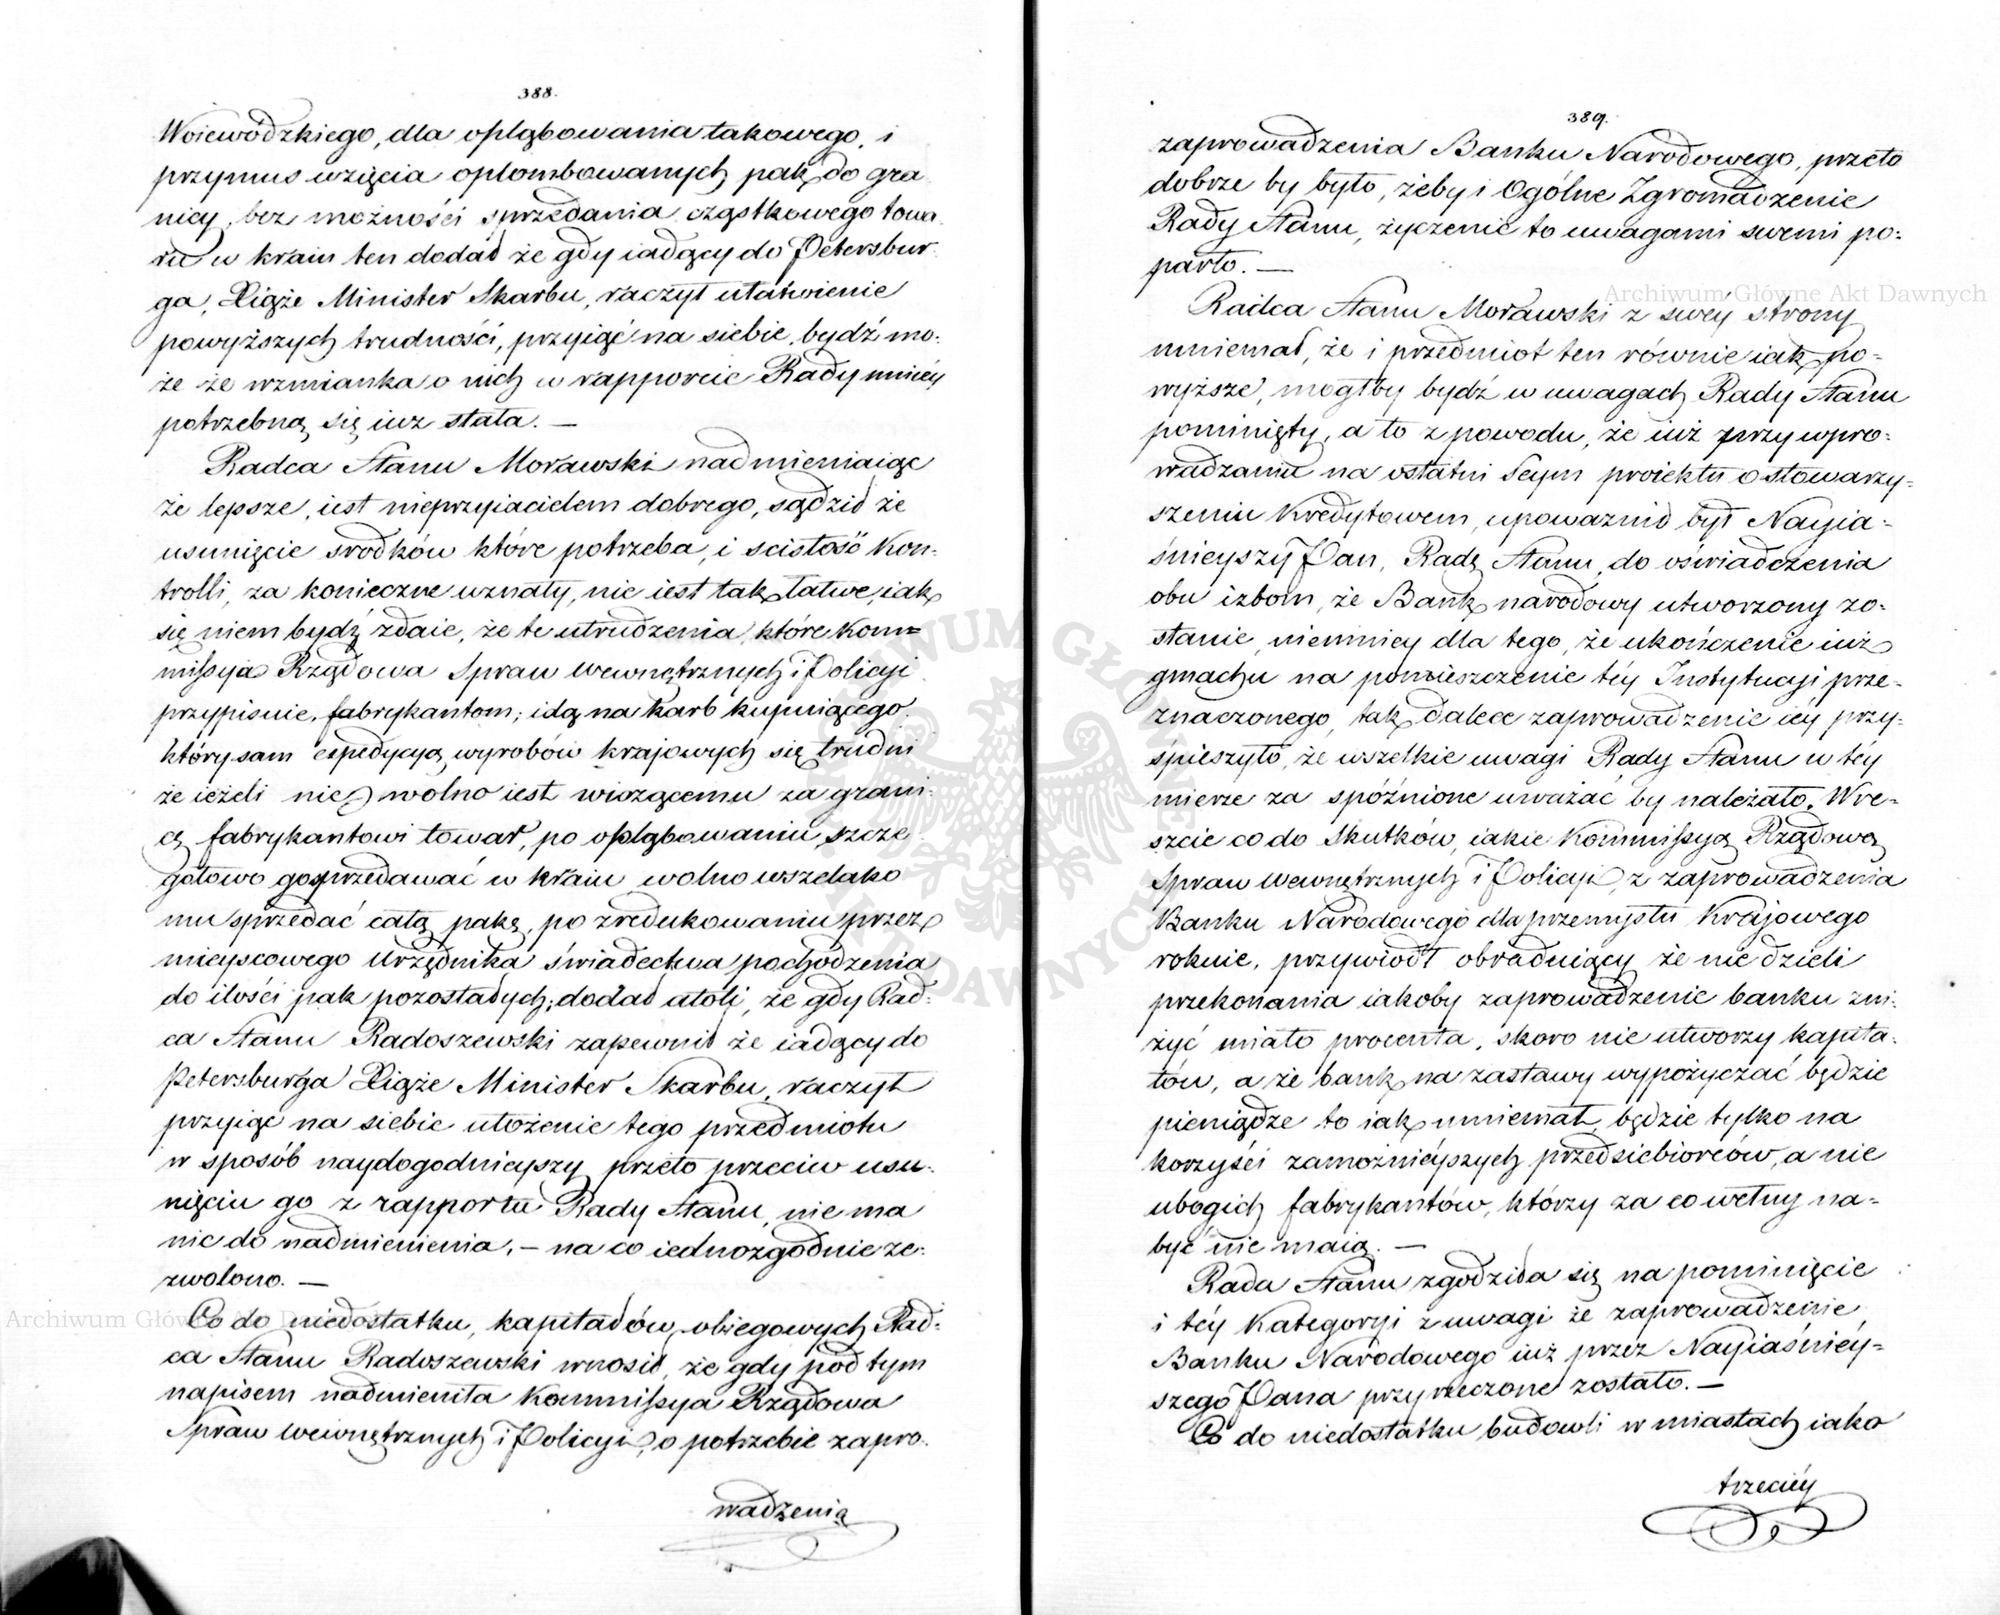 388.
Woiewódzkiego, dla opląbowania takowego, i
przymus wzięcia oplombowanych pak do gra
nicy, bez możności sprzedania cząstkowego towa
ru w kraiu ten dodał że gdy iadący do Petersbur
ga, Xiąże Minister Skarbu, raczył ułatwienie
powyższych trudności, przyiąć na siebie, bydź mo:
że że wzmianka o nich w rapporcie Rady mniéy
potrzebną się iuż stała. —
Radca Stanu Morawski nadmieniaiąc
że lepsze, iest nieprzyiacielem dobrego, sądził że
usunięcie srodków które potrzeba, i scisłość Kon:
trolli, za konieczne uznały, nie iest tak łatwe, iak
się niem bydź zdaie, że te utrudzenia, które Kom=
missya Rządowa Spraw Wewnętrznych i Policyi
przypisuie, fabrykantom; idą na karb kupuiącego
który sam expedycyą wyrobów krajowych się trudni
że ieżeli nie wolno iest wiozącemu za grani:
cę fabrykantowi towar, po opląbowaniu szcze
gołowo go sprzedawać w kraiu wolno wszelako
mu sprzedać całą pakę, po zredukowaniu przez
mieyscowego Urzędnika świadectwa pochodzenia
do ilości pak pozostałych; dodał atoli, że gdy Rad:
ca Stanu Radoszewski zapewnił że iadący do
Petersburga Xiąże Minister Skarbu, raczył
przyiąć na siebie ułożenie tego przedmiotu
w sposób naydogodnieyszy przeto przeciw usu:
nięciu go z rapportu Rady Stanu, nie ma
nic do nadmienienia, — na co iednozgodnie ze:
zwolono. —
Co do niedostatku, kapitałów, obiegowych Rad:
ca Stanu Radoszewski wnosił, że gdy pod tym
napisem nadmieniła Kommissya Rządowa
Spraw Wewnętrznych i Policyi, o potrzebie zapro:
wadzenia
389.
zaprowadzenia Banku Narodowego, przeto
dobrze by było, żeby i Ogólne Zgromadzenie
Rady Stanu, życzenie to uwagami swemi po:
parło. —
Radca Stanu Morawski z swéy strony
mniemał, że i przedmiot ten równie iak po-
wyższe, mógłby bydź w uwagach Rady Stanu
pominięty, a to z powodu, że iuż przy wpro:
wadzaniu na ostatni Seym proiektu o stowarzy=
szeniu Kredytowem, upoważnił był Nayia-
śnieyszy Pan, Radę Stanu, do oświadczenia
obu izbom, że Bank narodowy utworzony zo:
stanie, niemniey dla tego, że ukończenie iuż
gmachu na pomieszczenie téy Instytucyi prze-
znaczonego, tak dalece zaprowadzenie iéy przy:
śpieszyło, że wszelkie uwagi Rady Stanu w téy
mierze za spóźnione uważać by należało. Wre-
szcie co do Skutków, iakie Kommissya Rządowa
Spraw Wewnętrznych i Policyi, z zaprowadzenia
Banku Narodowego dla przemysłu Krajowego
rokuie, przywiódł obraduiący że nie dzieli
przekonania iakoby zaprowadzenie banku zni:
żyć miało procenta, skoro nie utworzy kapita:
łów, a że bank na zastawy wypożyczać będzie
pieniądze to iak mniemał będzie tylko na
korzyści zamożniéyszych przedsiebiorców, a nie
ubogich fabrykantów, którzy za co wełny na=
być nie maią. —
Rada Stanu zgodziła się na pominięcie
i téy Kategoryi z uwagi że zaprowadzenie
Banku Narodowego iuż przez Nayiaśniéy=
szego Pana przyrzeczone zostało. —
Co do niedostatku budowli w miastach iako
trzeciéy
Archiwum Główne Akt Dawnych
Archiwum Główne Akt Dawnych
ARCHIWUM GŁÓWNE AKT DAWNYCH